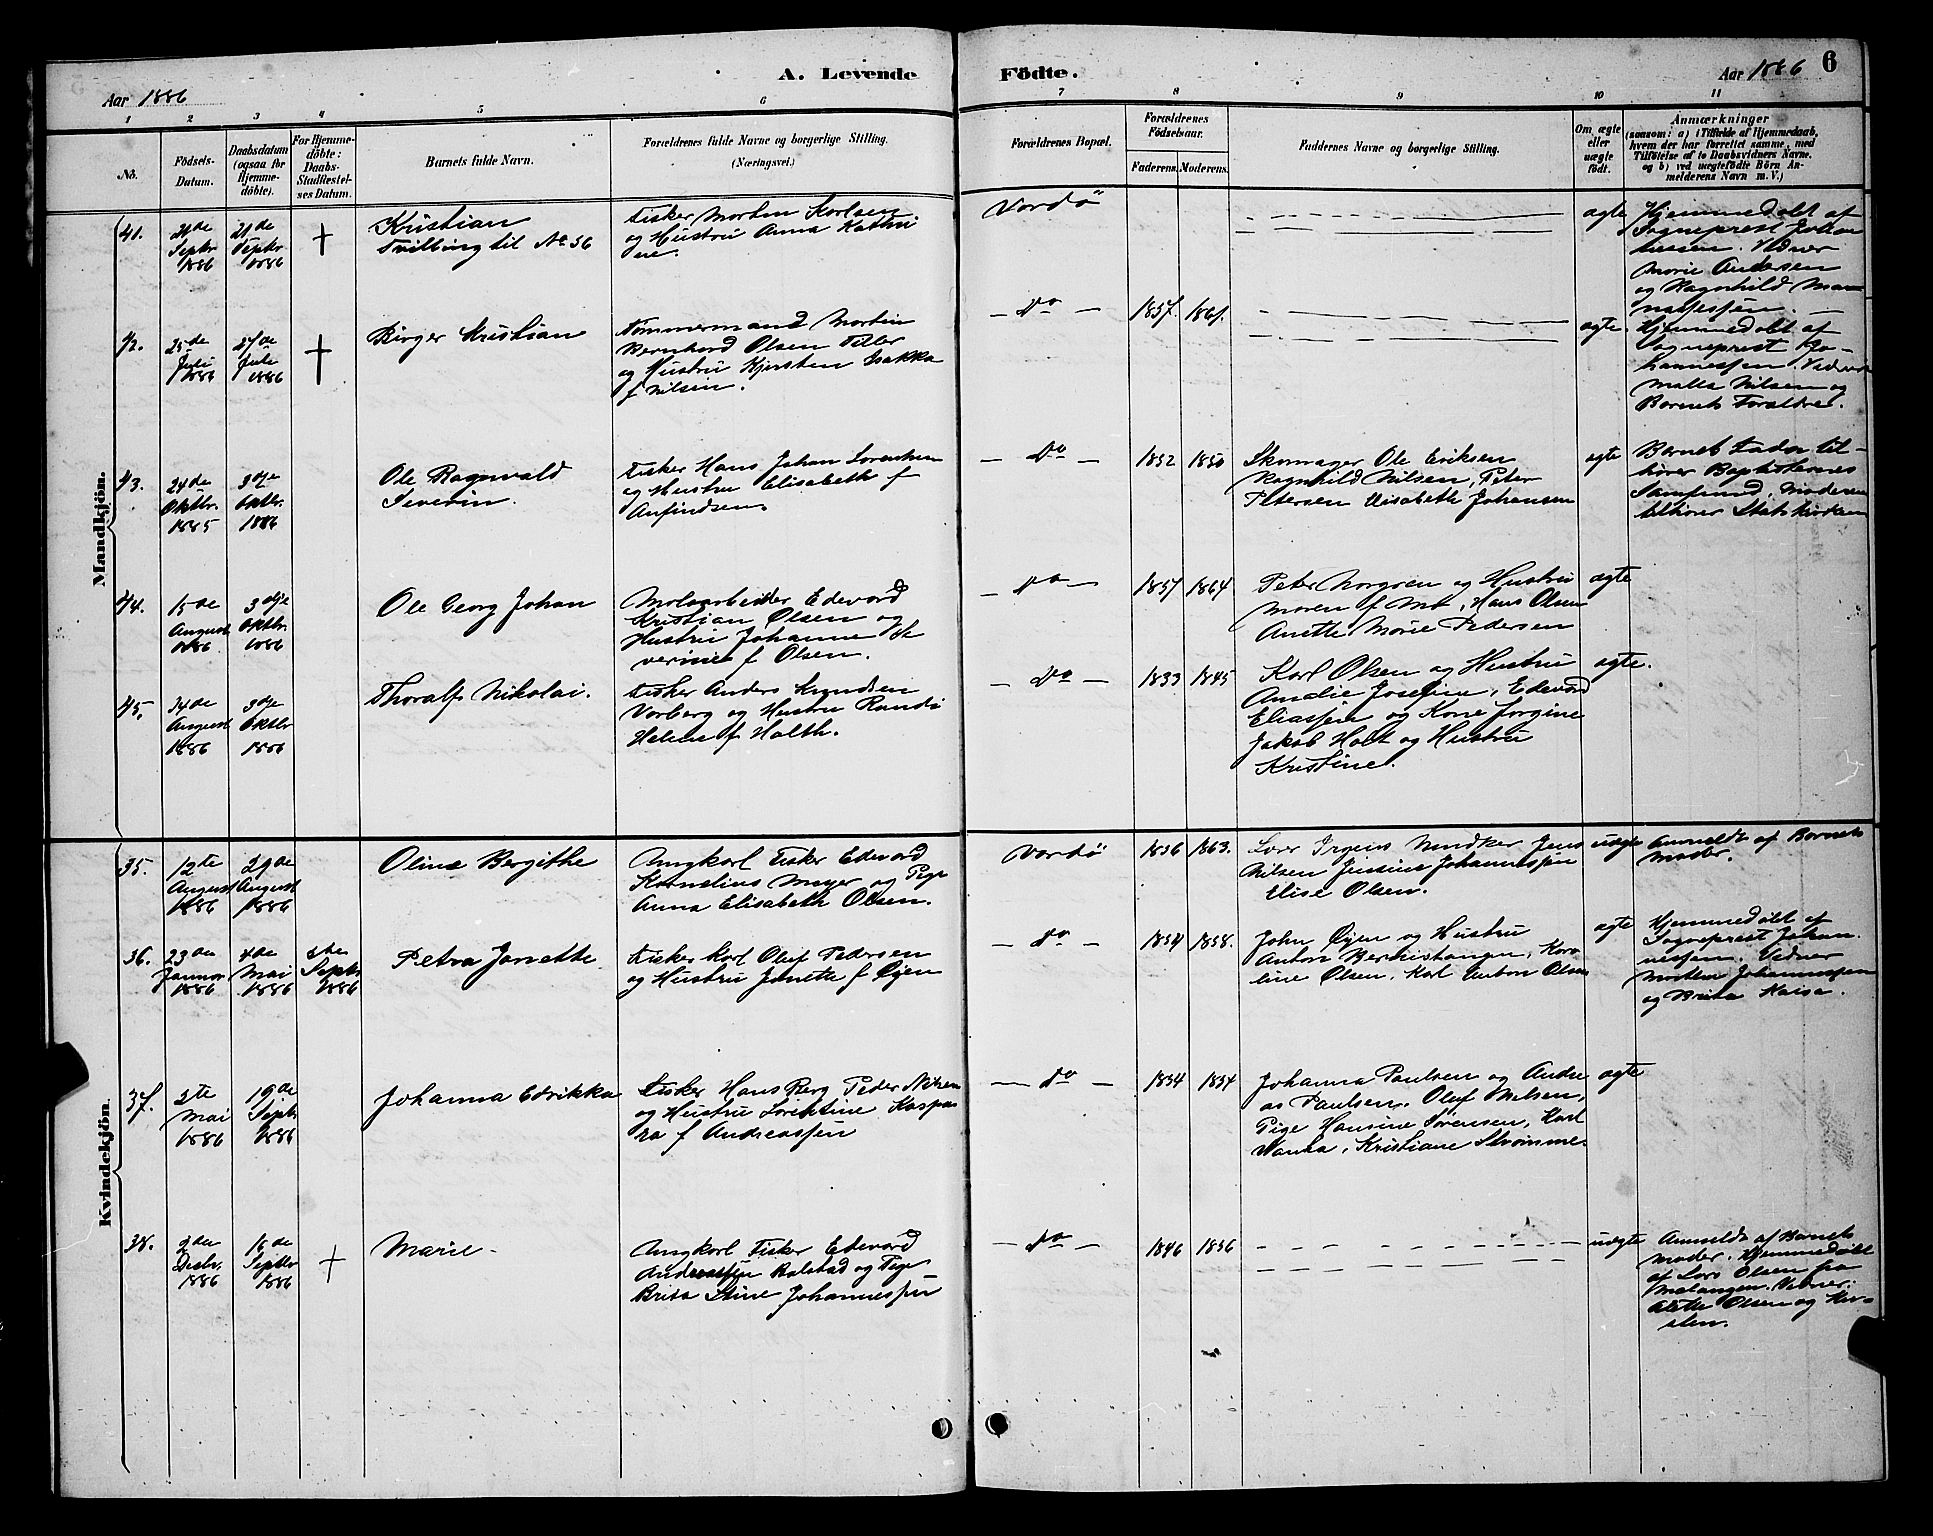 A. Levende
Födte.
6
Aar 1886
Aar 1886
1 2 3 4 5 6 7 8 9 10 11
No.
Födsels-
Datum.
Daabsdatum
(ogsaa for
Hjemme-
döbte).
For Hjemme-
döbte:
Daabs-
Stadfæstel-
ses Datum.
Barnets fulde Navn.
Forældrenes fulde Navne og borgerlige Stilling.
(Næringsvei.)
Forældrenes Bopæl.
Forældrenes
Födselsaar.
Faderens. Moderens.
Faddernes Navne og borgerlige Stilling.
Om ægte
eller
uægte
födt.
Anmærkninger
(saasom: a) i Tilfælde af Hjemmedaab,
hvem der har forrettet samme, med
Tilföielse af to Daabsvidners Navne,
og b) ved uægtefödte Börn An-
melderens Navn m. V.)
Mandkjön.
41.
Septbr 1886
21de Septbr 1886
+
Kristian
Tvilling til No 36
Fisker Morten Karlsen
og Hustru Anna Kathri
ne.
Vardö
ægte
Hjemmedöbt af
Sogneprest Johan
nessen. Vidner
Marie Andersen
og Ragnhild
42.
25de Juli 1886
27de Juli 1886
+
Birger Kristian
Tömmermand Martin
Bernhard Olsen Tiller
og Hustru Kjersten Isakka
f Nilsen.
- Do -
1857. 1861.
ægte.
Hjemmedöbt af
Sogneprest Jo-
hannessen. Vidner
Malla Nilsen og
Barnets Forældre.
43.
24de Oktbr. 1885
3dje Oktbr. 1886
Ole Ragnvald
Severin.
Fisker Hans Johan Lorentsen
og Hustru Elisabeth f
Anfindsen
- Do -
1852 1850
Skomager Ole Eriksen
Ragnhild Nilsen, Peter
Petersen Elisabeth Johansen
ægte
Barnets Fader til-
hörer Baptisternes
Samfund, Moderen
tilhörer Statskirken
44.
15de August 1886
3dje Oktbr. 1886
Ole Georg Johan
Moloarbeider Edevard
Kristian Olsen og
Hustru Johanne Se
verine f Olsen.
- Do -
1857 1864
Peter Norgren og Hustru
Maren f Mo, Hans Olsen
Anette Marie Pedersen
ægte
45.
August 1886
3dje Oktbr 1886
Thoralf Nikolai.
Fisker Anders Knudsen
Varberg og Hustru Randi
Helene f Holth.
- Do -
1833 1845
Karl Olsen og Hustru
Amalie Josefine, Edevard
Eliassen og Kone Jørgine
Jakob Holt og Hustru
Kristine.
ægte.
Kvindekjön.
35.
12te August 1886
29de August 1886
Oline Bergithe
Ungkarl Fisker Edevard
Kornelius Meyer og Pige
Anna Elisabeth Olsen.
Vardö
1836 1863.
Jens
Nilsen Jensine Johannessen
Elise Olsen.
uægte
Anmeldt af Barnets
Moder.
36.
23de Januar 1886
4de Mai 1886
5te Septbr 1886
Petra Janette
Fisker Karl Oluf Pedersen
og Hustru Janette f Øyen
- Do -
1854 1858.
John Øyen og Hustru
Anton Karo
line Olsen, Karl Anton Olsen
ægte
Hjemmedöbt af
Sogneprest Johan-
nessen. Vidner
Morten Johannessen
og Brita Kaisa.
37.
Mai 1886
19de Septbr 1886
Johanna Edrikka
Fisker Hans Berg Peder Nilsen
og Hustru Kaspa
ra f Andreassen
- Do -
1854 1854
Johanna Paulsen og Andre
as Paulsen, Oluf Nilsen,
Pige Hansine Sørensen, Karl
Wanka, Kristiane Strömme.
ægte
38.
2den Decbr. 1886
15de Septbr 1886
+
Marie -
Ungkarl Fisker Edevard
Andreassen Balstad og Pige
Brita Stine Johannessen
- Do -
1846 1856
uægte
Anmeldt af Barnets
Moder. Hjemmedöbt
af Lars Olsen fra
Malangen. Vidner:
Olsen og Kir-
sten.